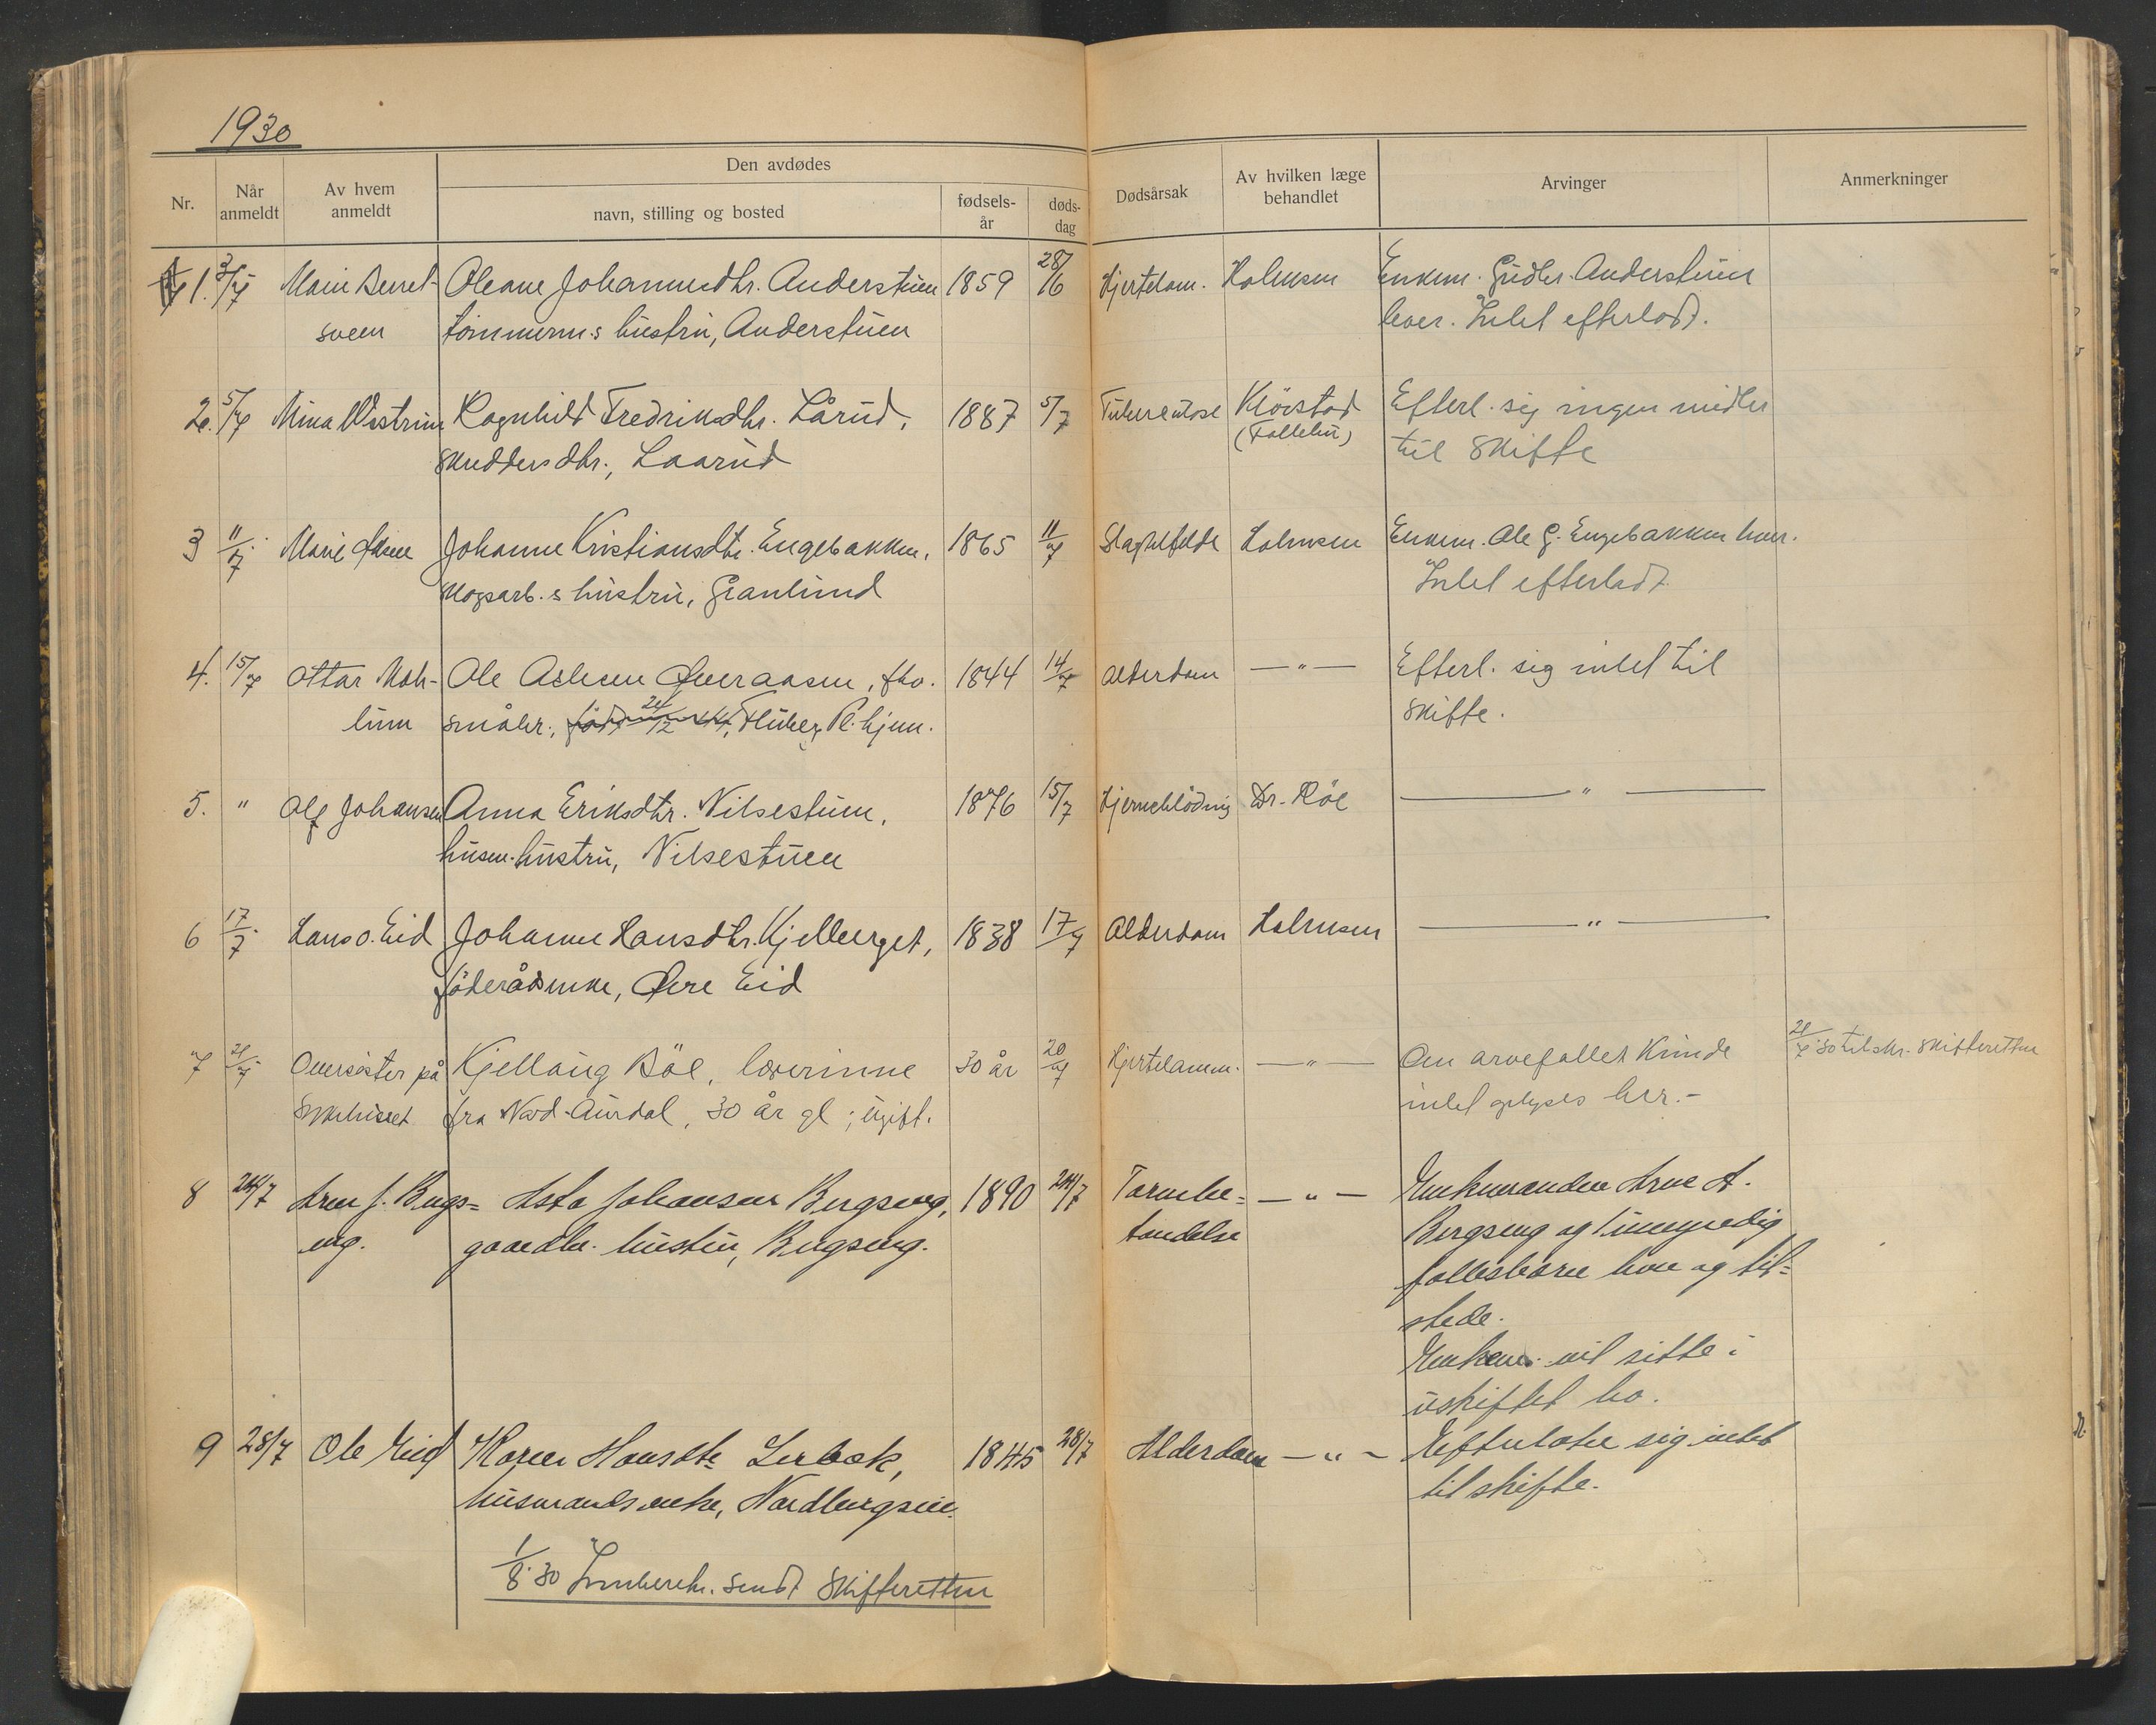 1930
Nr.
Når anmeldt
Av hvem anmeldt
Den avdødes
navn, stilling og bosted
fødsels-år
døds-dag
Dødsårsak
Av hvilken læge behandlet
Arvinger
Anmerkninger
1. 3/7 Marie Oleane Johannesdtr. Anderstuen 1859 28/6 Hjertelam. Holmsen Enkem. Gudbr. Anderstuen
sveen tømmerm.s hustru, Anderstuen lever. Intet efterladt.
2. 5/7 Mina Ragnhild Fredriksdtr. Lårud, 1887 5/7 Tuberculose Kløvstad Efterl. sig ingen midler
skreddersdtr., Laarud (Follebu) til skifte
3 11/7 Marie Johanne Kristiansdtr. Engebakken, 1865 11/7 Slagtilfelde Holmsen Enkem. Ole G. Engebakken lever.
skogsarb.s hustru, Granlund Intet efterladt
4. 15/7 Ottar Moh- Ole Olsen Øveraasen, fhv. 1844 14/7 Alderdom — " — Efterl. sig intet til
lium småbr., Pl. hjem. skifte.
5. " Olaf Johansen Anna Eriksdtr. Nilsestuen, 1876 15/7 Hjerneblödning Dr. Röe — " —
husm. hustru, Nilsestuen
6 17/7 Hans O. Eid Johanne Hansdtr. Kjelberget, 1838 17/7 Alderdom Holmsen — " —
föderådsenke, Øvre Eid
7 21/7 Oversøster på Kjellaug Böe, lærerinne 30 år 20/7 Hjertelamm. — " — Om arvefallet kunde 21/7.30 tilskr. skifteretten
Sykehuset fra Nord-Aurdal, 30 år gl; ugift. intet oplyses her.-
8 24/7 Arne J. Bergs= Asta Johansen Bergseng, 1890 24/7 Tarmbe= — " — Enkemanden Arne A.
eng. gaardbr. hustru, Bergseng. tendelse Bergseng og 1 umyndig
fellesbarn lever og til=
stede.
Enkem. vil sitte i
uskiftet bo.
9 28/7 Ole Eid Karen Hansdtr Lerbæk, 1845 28/7 Alderdom — " — Efterlater sig intet
husmands enke, Nordbergseie. til skifte.
1/8.30 Innberetn. sendt Skifteretten